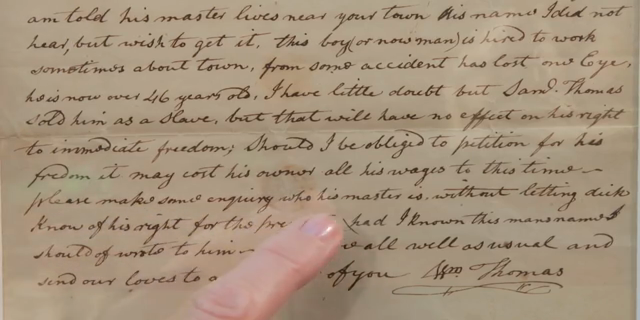 am told his master lives near your town his name I did not
hear, but wish to get it, this boy (or now man) is hired to work
sometimes about town, from some accident has lost one Eye,
he is now over 46 years old, I have little doubt but Saml. Thomas
sold him as a Slave, but that will have no effect on his right
to immediate freedom; Should I be obliged to petition for his
fredom it may cost his owner all his wages to this time —
please make some enquiry who his master is, without letting dick
Know of his right for the had I known this mans name I
should of wrote to him all well as usual and
send our loves to of you Wm Thomas